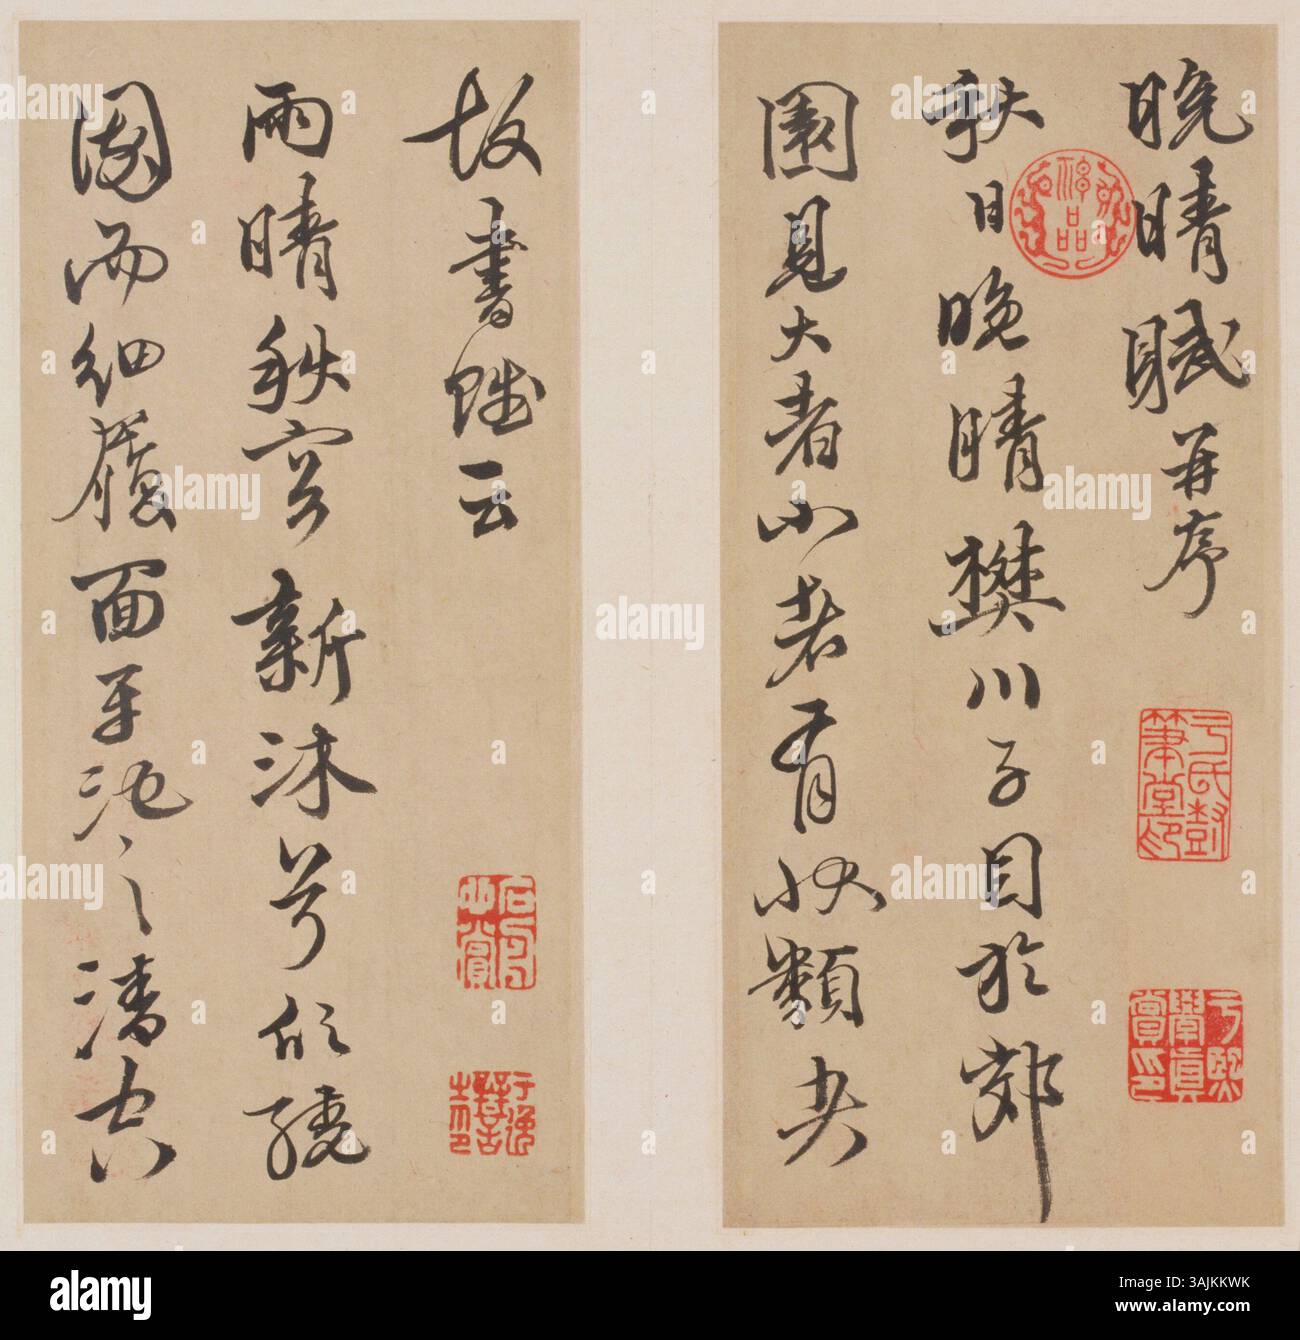 晚晴賦并序
秋日晚晴樊川子目於郊
園見大者小者有狀類者
故書賦云
雨晴秋容新沐兮忻繞
園而細履面平池之清空
alamy
Image ID: 3AJKKWK
www.alamy.com